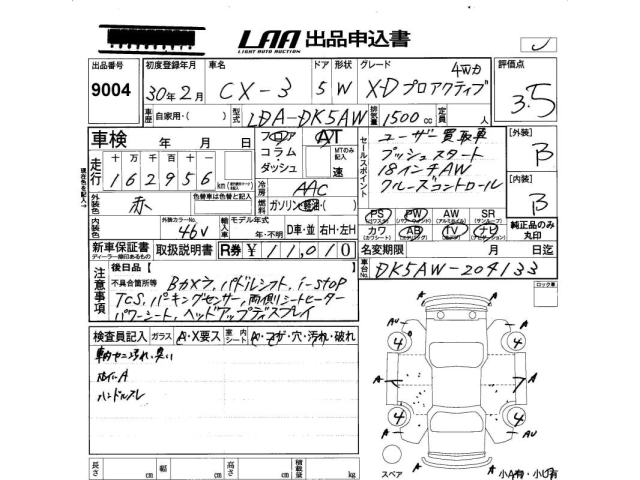 LAA 出品申込書
LIGHT AUTO AUCTION
出品番号 初度登録年月 車名 ドア 形状 グレード 評価点
9004 30年2月 CX-3 5 W XD プロアクティブ 4WD 3.5
車歴 自家用・( ) 型式 LDA-DK5AW 排気量 1500 cc 定員 人
車検 年 月 日
フロア コラム・ダッシュ AT MTのみ記入 速
セールスポイント
ユーザー買取車
プッシュスタート
18インチAW
クルーズコントロール
[外装] B
[内装] B
走行 十万千百十 162956 km
現在名を記入→
冷房 AAC
燃料 ガソリン・軽油・( )
外装色 赤 色替車は色替と記入
外装カラーNo. 46V
輸入車 モデル年式 年・不明 D車・並 右H・左H
PS PW AW SR
(パワステ) (パワーウインド) (アルミホイール) (サンルーフ)
カワ AB TV ナビ
(カワシート) (エアバッグ) (テレビ) (ナビゲーション)
純正品のみ丸印
新車保証書 取扱説明書 R券 ¥11,010
ディーラー捺印あるもの
名変期限 月 日迄
車台No. DK5AW-204133
注意事項 後日品【 】
不具合箇所等 Bカメラ, パドルシフト, i-stop
TCS, パーキングセンサー, 両側シートヒーター
パワーシート, ヘッドアップディスプレイ
ロック車
検査員記入 ガラス A・X要ス 室内シート A・コゲ・穴・汚れ・破れ
車内ヤニ汚れ, 臭い
ホイールA
ハンドルスレ
AU A A
4 4
A A
4 4
A A AU A
スペア 小A有・小U有
長さ cm 幅 cm 高さ cm 積載量 kg